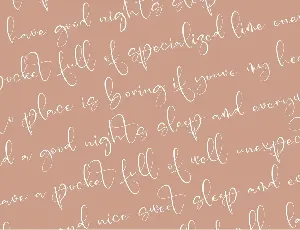 have good nights sleep
pocket full of specialized lime
place is boring if youre my
a good nights sleep and
have a pocket full of well
and nice sweet sleep and